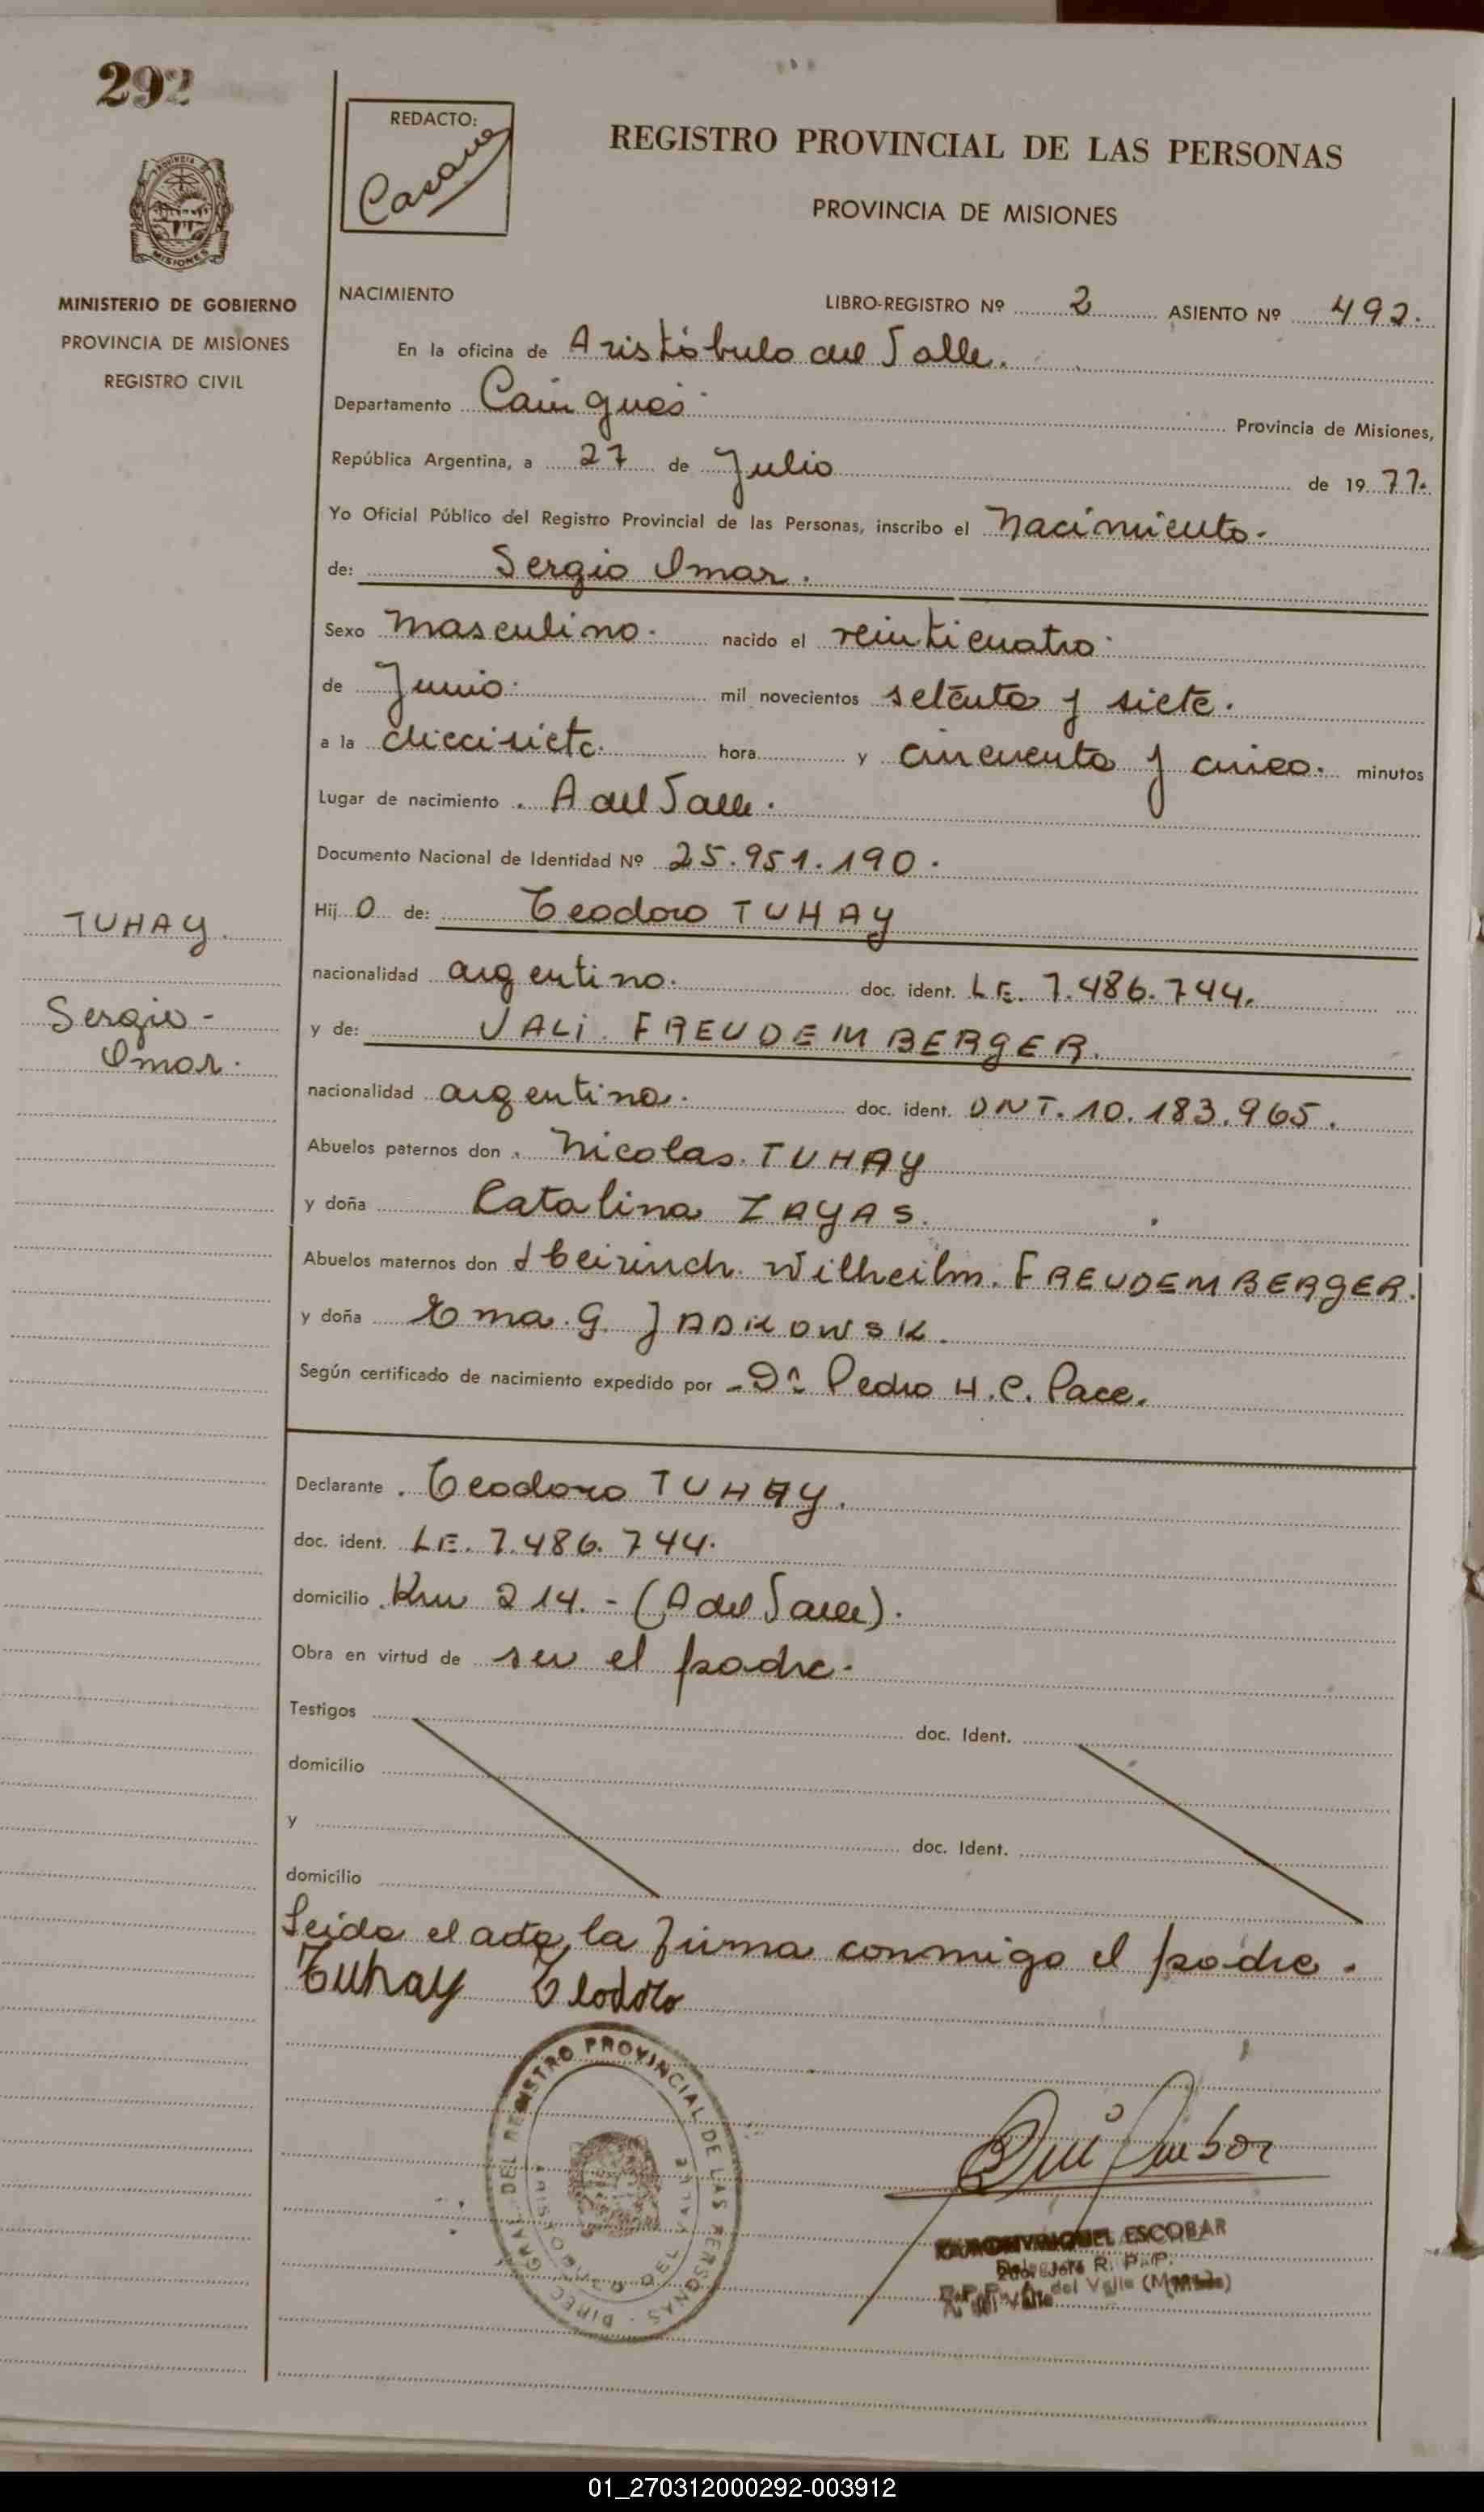 292
REDACTO:
REGISTRO PROVINCIAL DE LAS PERSONAS
PROVINCIA DE MISIONES
MISIONES
MINISTERIO DE GOBIERNO
PROVINCIA DE MISIONES
REGISTRO CIVIL
NACIMIENTO
LIBRO-REGISTRO Nº 2 ASIENTO Nº 492.
En la oficina de Aristóbulo del Valle.
Departamento Cainguás Provincia de Misiones,
República Argentina, a 27 de Julio de 1977.
Yo Oficial Público del Registro Provincial de las Personas, inscribo el Nacimiento.
de: Sergio Omar.
Sexo Masculino. nacido el veinticuatro
de Junio. mil novecientos setenta y siete.
a la diecisiete. hora y cincuenta y cinco. minutos
Lugar de nacimiento A del Valle.
Documento Nacional de Identidad Nº 25.951.190.
Hij o de: Teodoro TUHAY
nacionalidad argentino. doc. ident. L.E. 7.486.744.
y de: VALI. FREUDEMBERGER.
nacionalidad argentina. doc. ident. DNI. 10.183.965.
Abuelos paternos don Nicolas. TUHAY
y doña Catalina ZAYAS.
Abuelos maternos don Heirinch. Wilheilm. FREUDEMBERGER.
y doña Ema. G. JADKOWSK.
Según certificado de nacimiento expedido por Dr. Pedro H.C. Pace.
TUHAY.
Sergio -
Omar.
Declarante Teodoro TUHAY.
doc. ident. L.E. 7.486.744.
domicilio Km 214. - (A del Valle).
Obra en virtud de ser el padre.
Testigos doc. Ident.
domicilio
y doc. Ident.
domicilio
Leida el acta, la firma conmigo el padre.
Tuhay Teodoro
DIREC. GRAL. DEL REGISTRO PROVINCIAL DE LAS PERSONAS
ARISTOBULO DEL VALLE
ESCOBAR
R. P. P.
A. del Valle
01_270312000292-003912